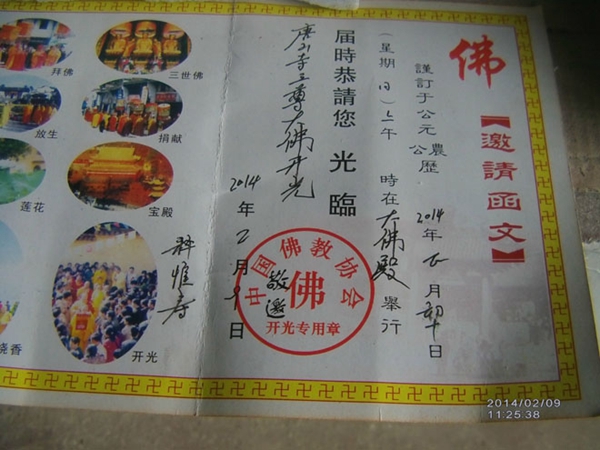 佛
【邀請函文】
謹訂于公元 農
公 曆 2014 年 正 月 初十 日
(星期 日) 上午 时在 大佛殿 舉行
届時恭請您 光臨
唐王寺三尊大佛开光
2014 年 2 月 9 日
敬邀
中国佛教协会
佛
开光专用章
拜佛
三世佛
放生
捐献
莲花
宝殿
烧香
开光
2014/02/09
11:25:38